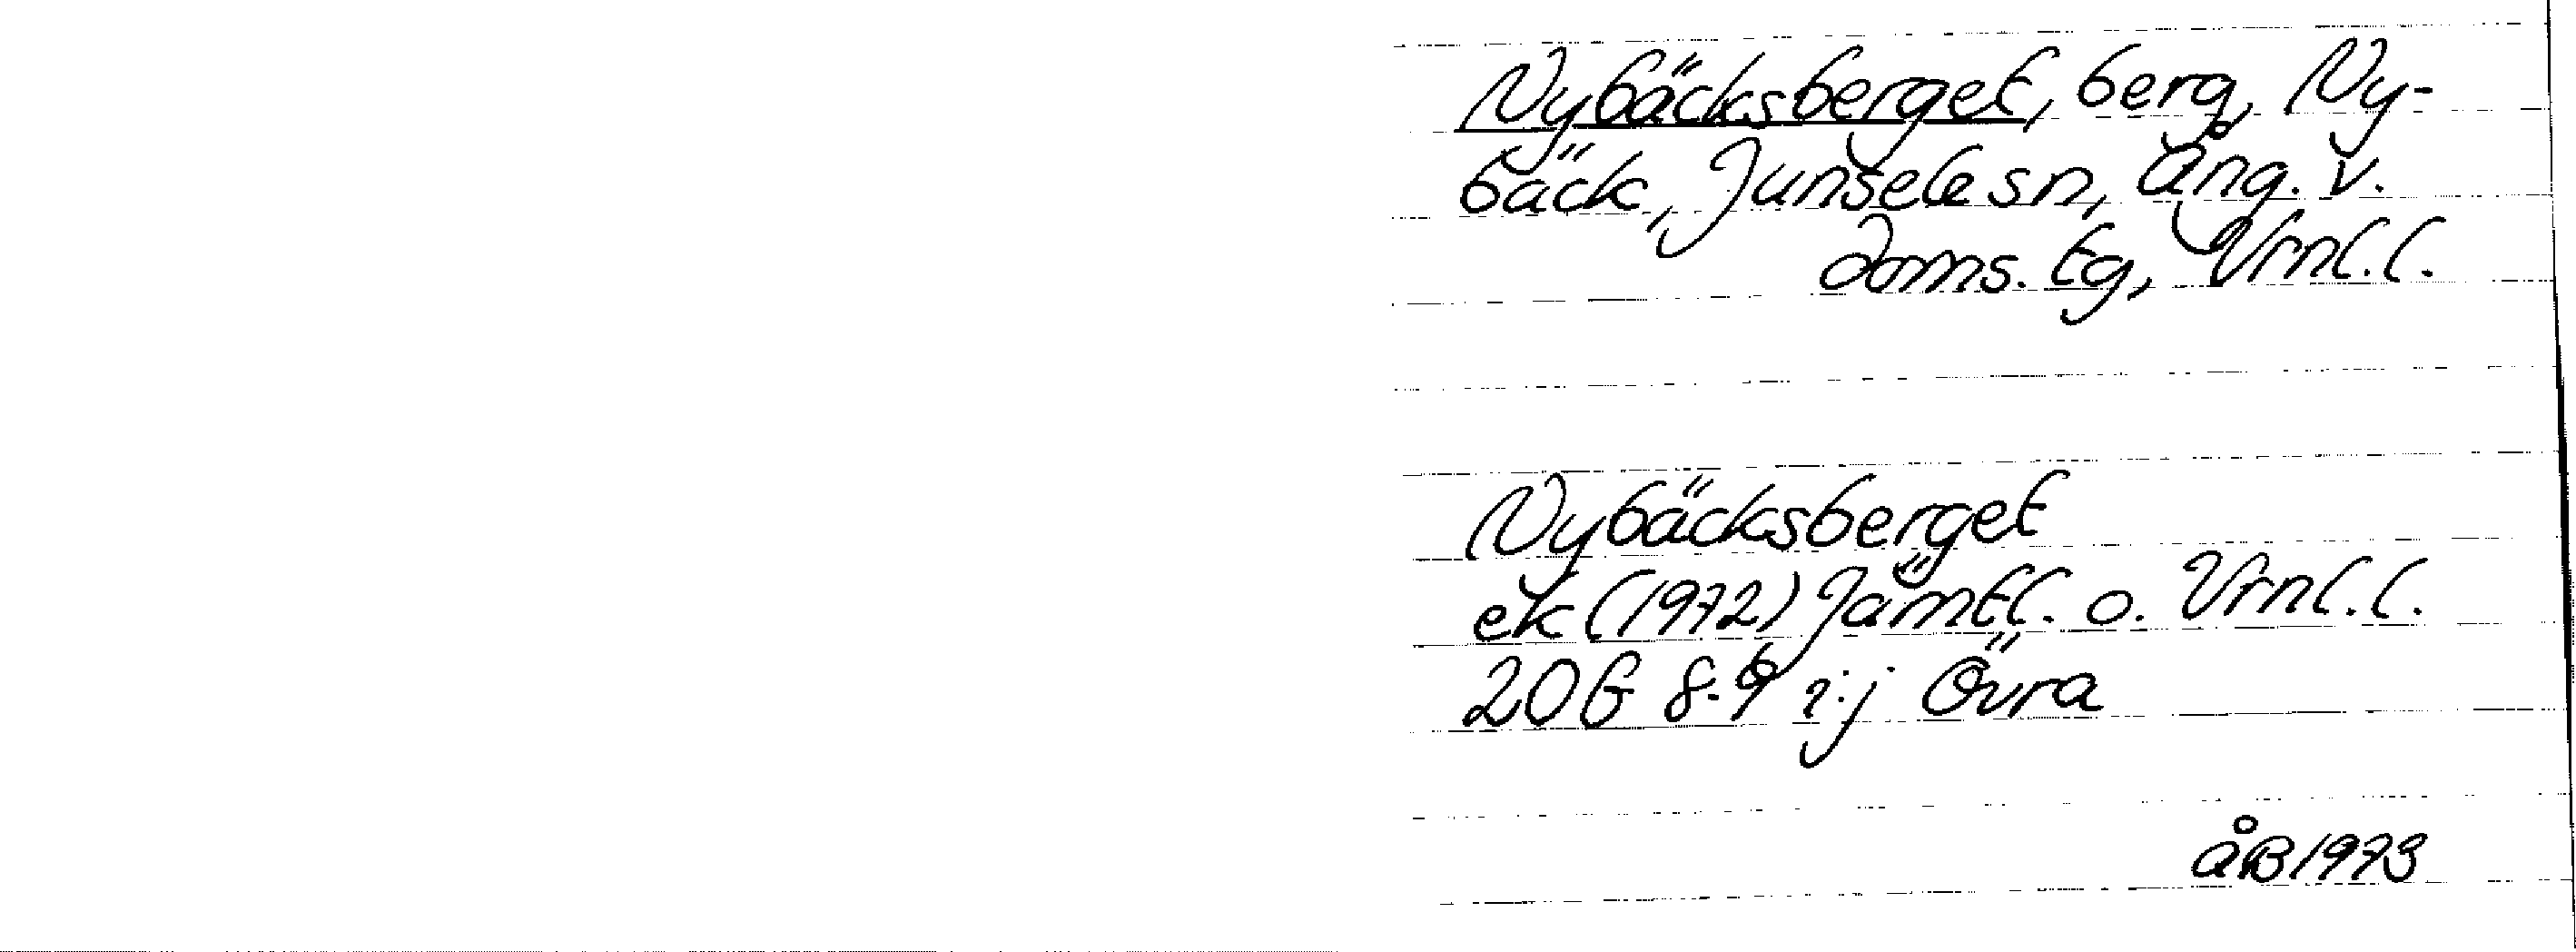 Nybäcksberget, berg, Ny-
bäck, Junsele sn, Ång. v.
doms. tg, Vrnl. l.
Nybäcksberget
ek (1972) Jämtl. o. Vrnl. l.
20G 8-9 i-j Övra
åB 1973